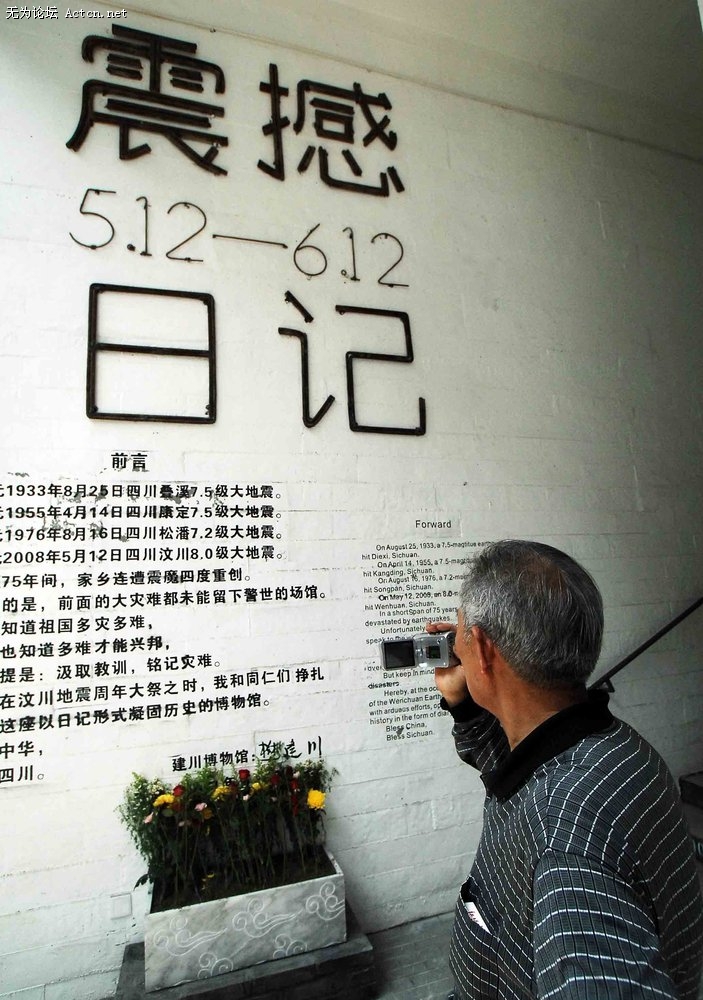 无为论坛 Actcn.net
震撼
5.12—6.12
日记
前言
1933年8月25日四川叠溪7.5级大地震。
1955年4月14日四川康定7.5级大地震。
1976年8月16日四川松潘7.2级大地震。
2008年5月12日四川汶川8.0级大地震。
75年间，家乡连遭震魔四度重创。
的是，前面的大灾难都未能留下警世的场馆。
知道祖国多灾多难，
也知道多难才能兴邦，
提是：汲取教训，铭记灾难。
在汶川地震周年大祭之时，我和同仁们 挣扎
这座以日记形式凝固历史的博物馆。
中华，
四川。
建川博物馆：樊建川
Forward
On August 25, 1933, a 7.5-magtitue
hit Diexi, Sichuan.
On April 14, 1955, a 7.5-mag
hit Kangding, Sichuan.
On August 16, 1976, a 7.2-m
hit Songpan, Sichuan.
On May 12, 2008, an 8.0-m
hit Wenhuan, Sichuan.
In a short span of 75 years
devastated by earthquakes.
Unfortunately
speak
But keep in mind
disasters.
Hereby, at the
of the Wenchuan Earth
with arduous efforts,
history in the form of
Bless China,
Bless Sichuan.